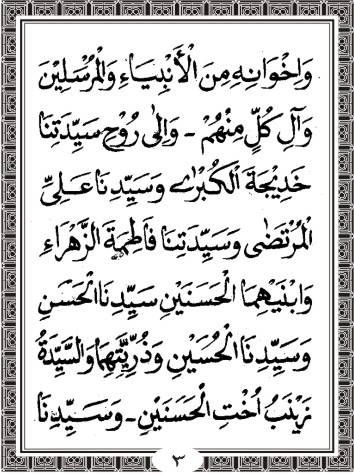 وَاِخْوَانِهِ مِنَ الْأَنْبِيَاءِ وَالْمُرْسَلِيْنَ
وَآلِ كُلٍّ مِنْهُمْ - وَاِلٰى رُوْحِ سَيِّدَتِنَا
خَدِيْجَةَ الْكُبْرٰى وَسَيِّدِنَا عَلِيِّ
الْمُرْتَضٰى وَسَيِّدَتِنَا فَاطِمَةَ الزَّهْرَاءِ
وَابْنَيْهِمَا الْحَسَنَيْنِ سَيِّدِنَا الْحَسَنِ
وَسَيِّدِنَا الْحُسَيْنِ وَذُرِّيَّتِهِمَا وَالسَّيِّدَةُ
زَيْنَبُ اُخْتِ الْحَسَنَيْنِ - وَسَيِّدِنَا
٣